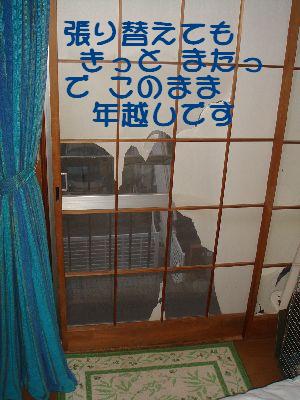 張り替えても
きっと またっ
て このまま
年越しです